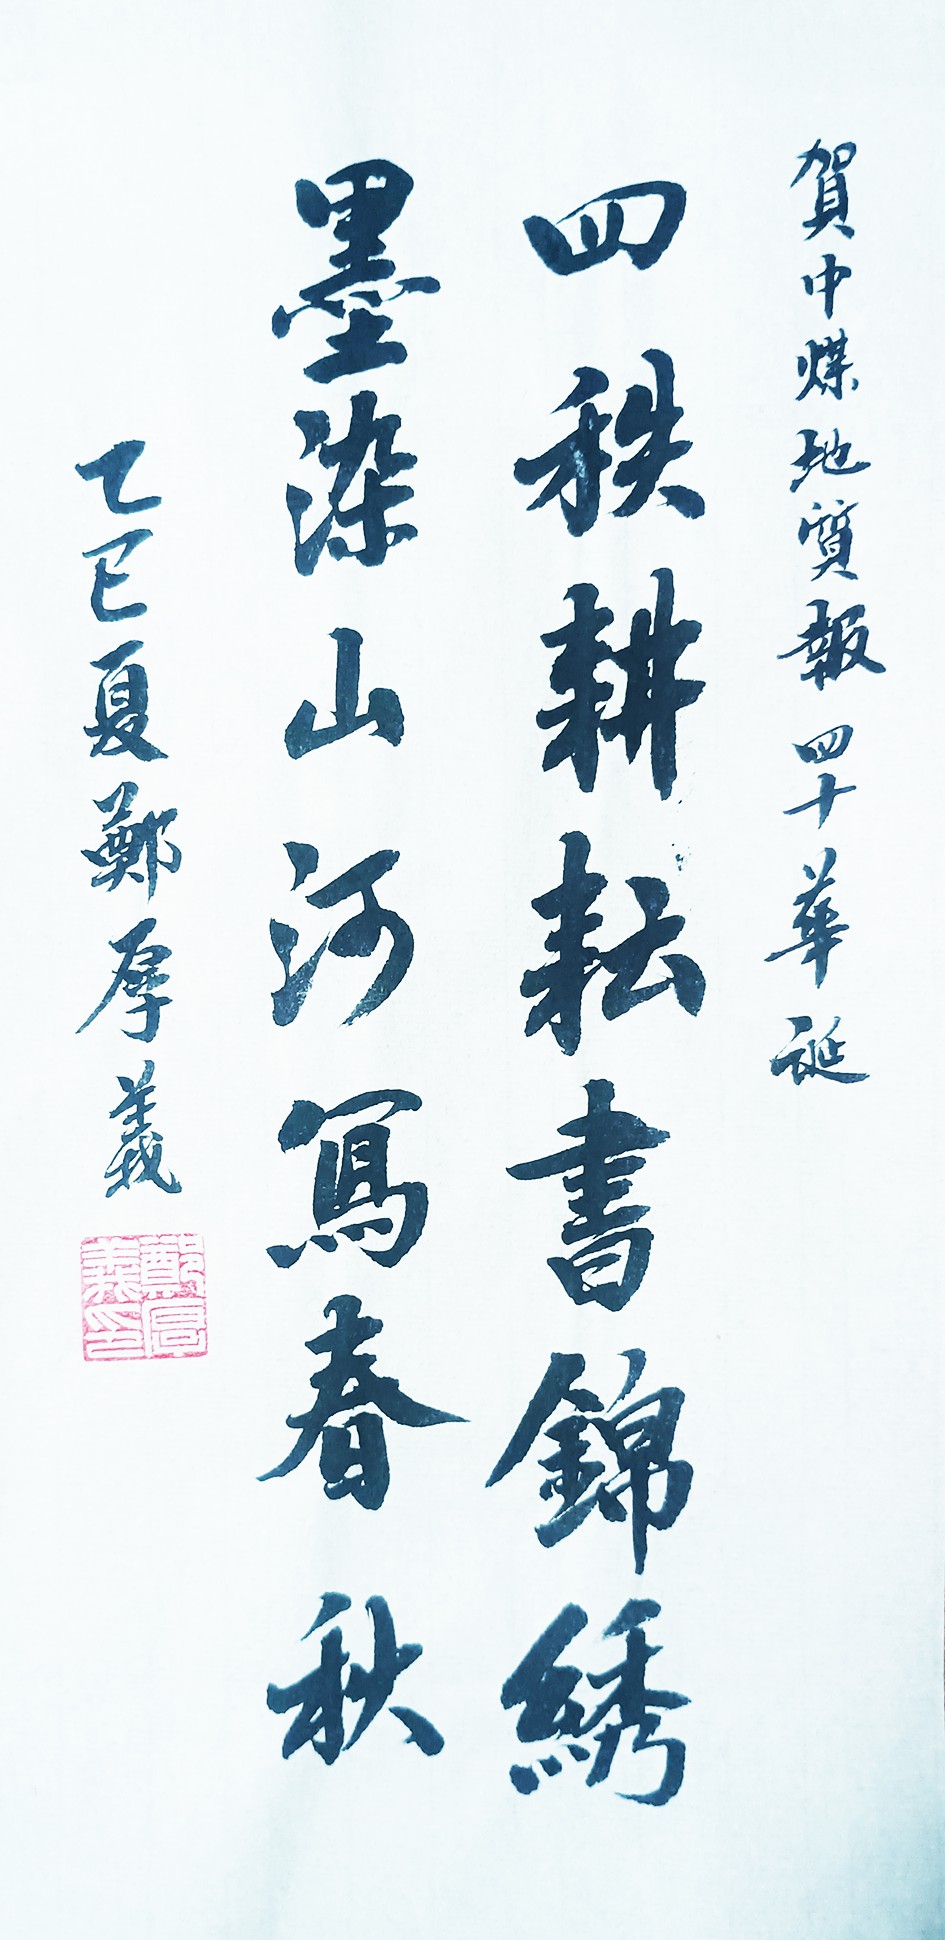 賀中煤地質報四十華誕
四秩耕耘書錦綉
墨染山河寫春秋
乙巳夏鄭厚義
鄭厚義印